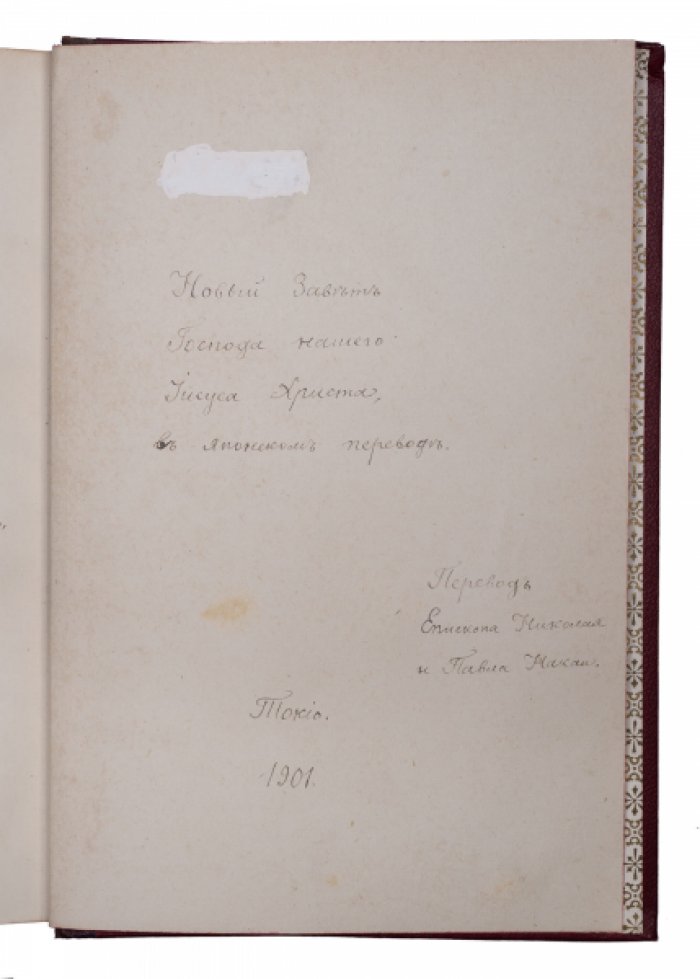 Новый Завѣтъ
Господа нашего
Іисуса Христа,
въ японскомъ переводѣ.
Переводъ
Епископа Николая
и Павла Накаи.
Токіо.
1901.